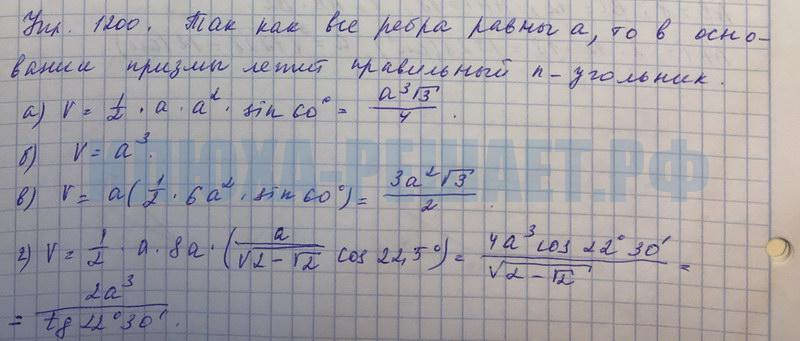 Упр. 1200. Так как все ребра равны а, то в осно-
вании призмы лежит правильный n-угольник.
а) V = 1/2 · a · a² · sin 60° = a³√3/4.
б) V = a³.
в) V = a(1/2 · 6a² · sin 60°) = 3a²√3/2.
г) V = 1/2 · a · 8a · (a/√(2-√2) cos 22,5°) = 4a³ cos 22° 30'/√(2-√2) =
= 2a³/tg 22° 30'.
ИЛЮХА-РЕШАЕТ.РФ